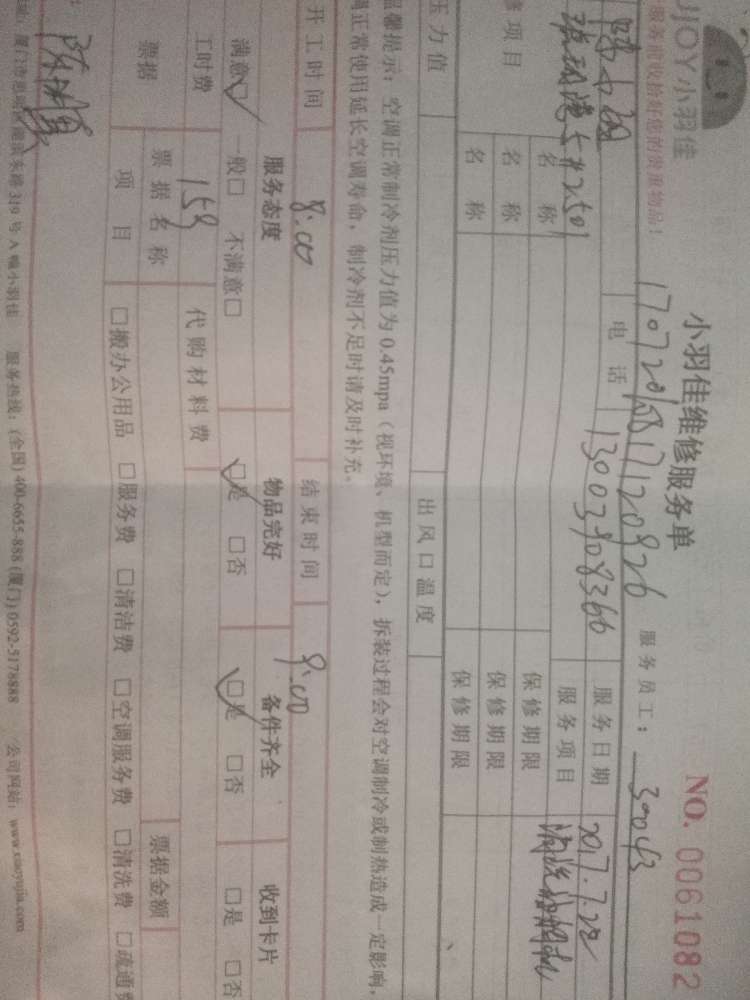 JOY小羽佳
服务前收拾好您的贵重物品！
小羽佳维修服务单
NO. 0061082
服务员工：30043
电话 13003908366 服务日期 2017.7.22
服务项目
修项目 名称 保修期限
名称 保修期限
名称 保修期限
压力值 出风口温度
温馨提示：空调正常制冷剂压力值为0.45mpa（视环境、机型而定），拆装过程会对空调制冷或制热造成一定影响，
调正常使用延长空调寿命，制冷剂不足时请及时补充。
开工时间 8:00 结束时间 9:00
服务态度 物品完好 备件齐全 收到卡片
满意☑ 一般□ 不满意□ ☑是 □否 ☑是 □否 □是 □否
工时费 159 代购材料费
票据 票据名称 票据金额
项目 □搬办公用品 □服务费 □清洁费 □空调服务费 □清洗费 □疏通费
319号A幢小羽佳 服务热线：(全国) 400-6655-888 (厦门) 0592-5178888 公司网站：www.xiaoyujia.com